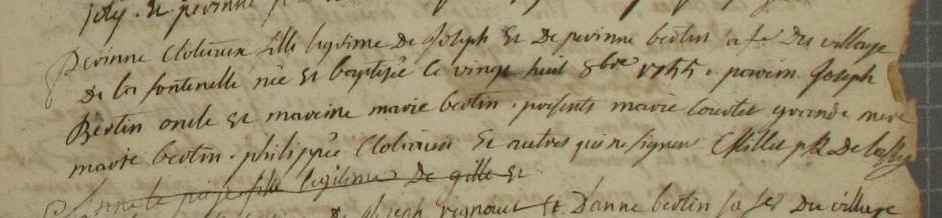 joly. Et perinne
Perinne Clolieux fille legitime De Joseph Et De perinne bertin sa fe Du village
De la fontenelle née Et baptisée Ce vingt huit 8bre 1755. parein Joseph
Bertin oncle Et mareine marie bertin. presents marie Courtet grande mere
marie bertin. philippée Clolieux Et autres qui ne signent
legitime De gille Et
De joseph regnault Et Danne bertin sa fe Du village